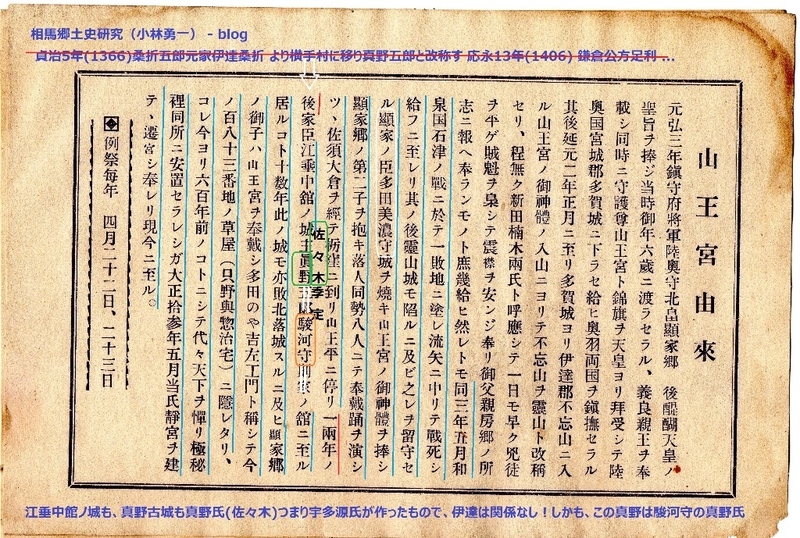 相馬郷土史研究（小林勇一） - blog
貞治5年(1366)桑折五郎元家伊達桑折 より横手村に移り真野五郎と改称す 応永13年(1406) 鎌倉公方足利 ...
山王宮由來
元弘三年鎮守府將軍陸奥守北皇顯家郷　後醍醐天皇ノ
聖旨ヲ捧ジ当時御年六歳ニ渡ラセラル、義良親王ヲ奉
載シ同時ニ守護尊山王宮ト錦旗ヲ天皇ヨリ拜受シテ陸
奥国宮城郡多賀城ニ下ラセ給ヒ奥羽両国ヲ鎮撫セラル
其後延元二年正月ニ至リ多賀城ヨリ伊達郡不忘山ニ入
ル山王宮ノ御神體ノ入山ニヨリテ不忘山ヲ靈山ト改稱
セリ、程無ク新田楠木兩氏ト呼應シテ一日モ早ク兇徒
ヲ平ゲ賊魁ヲ梟シテ震襟ヲ安ンジ奉リ御父親房郷ノ所
志ニ報ヘ奉ランモノト庶幾給ヒ然レトモ同三年五月和
泉国石津ノ戰ニ於テ一敗地ニ塗レ流矢ニ中リテ戰死シ
給フニ至レリ其ノ後靈山城モ陷ルニ及ビ之レヲ留守セ
ル顯家ノ臣多田美濃守城ヲ燒キ山王宮ノ御神體ヲ捧シ
顯家郷ノ第二子ヲ抱キ落人同勢八人ニテ奉戴踊ヲ演シ
ツヽ佐須大倉ヲ經テ栃窪ニ到リ山王平ニ停リ一兩年ノ
佐々木季定
後家臣江垂中舘ノ城主眞野駿河守ノ舘ニ至ル
居ルコト十数年此ノ城モ亦敗北落城スルニ及ヒ顯家郷
ノ御子ハ山王宮ヲ奉戴シ多田のや吉左エ門ト稱シテ今
ノ百八十三番地ノ草屋（只野與惣治宅）ニ隱レタリ、
コレ今ヨリ六百年前ノコトニシテ代々天下ヲ憚リ極秘
裡同所ニ安置セラレシガ大正拾参年五月当氏靜宮ヲ建
テ、遷宮シ奉レリ現今ニ至ル。
◆例祭毎年　四月二十二日、二十三日
江垂中館ノ城も、真野古城も真野氏(佐々木)つまり宇多源氏が作ったもので、伊達は関係なし！しかも、この真野は駿河守の真野氏